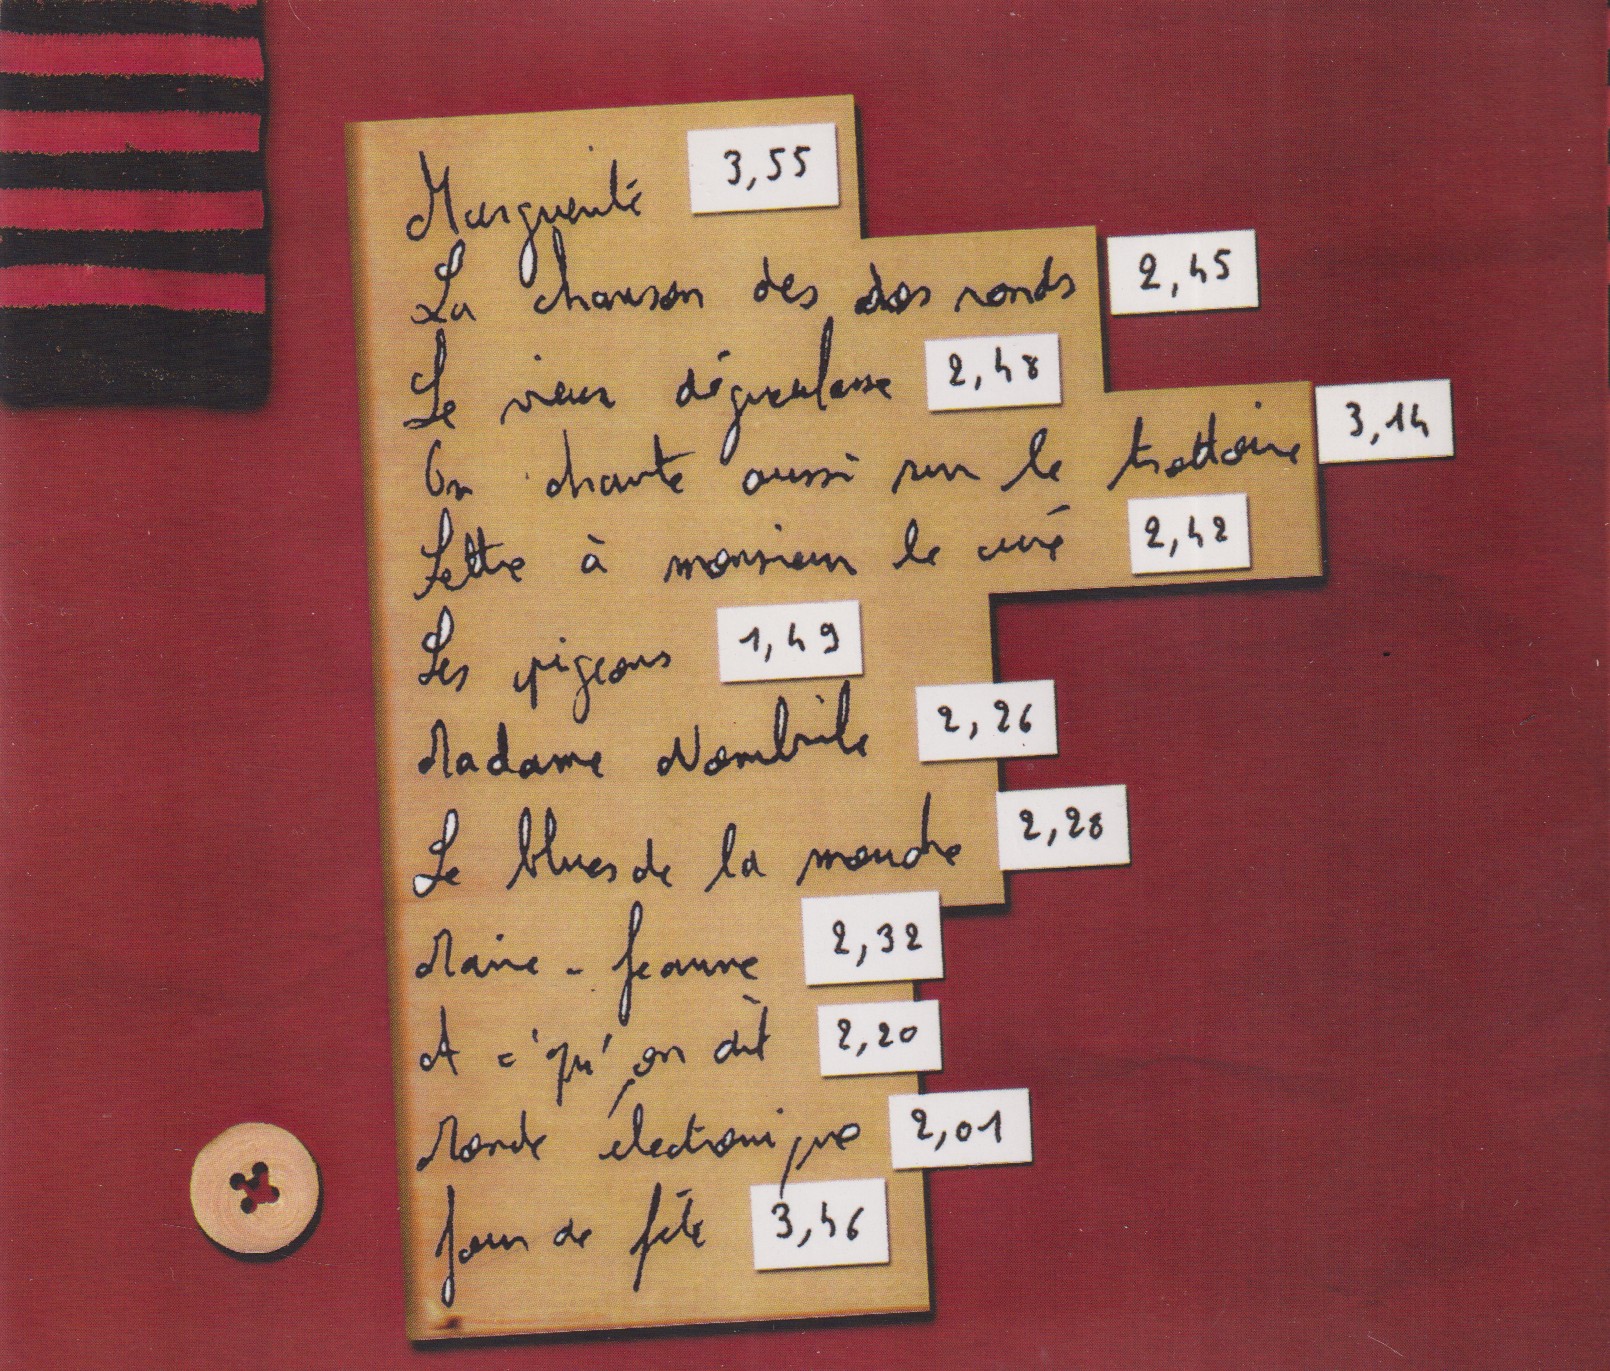 Marguerite 3,55
La chanson des dos ronds 2,45
Le vieux dégueulasse 2,48
On chante aussi sur le trottoire 3,14
Lettre à monsieur le curé 2,42
Les pigeons 1,49
Madame Nombrile 2,26
Le blues de la mouche 2,28
Marie-Jeanne 2,32
A c'qu'on dit 2,20
Monde électronique 2,01
Jour de fête 3,46